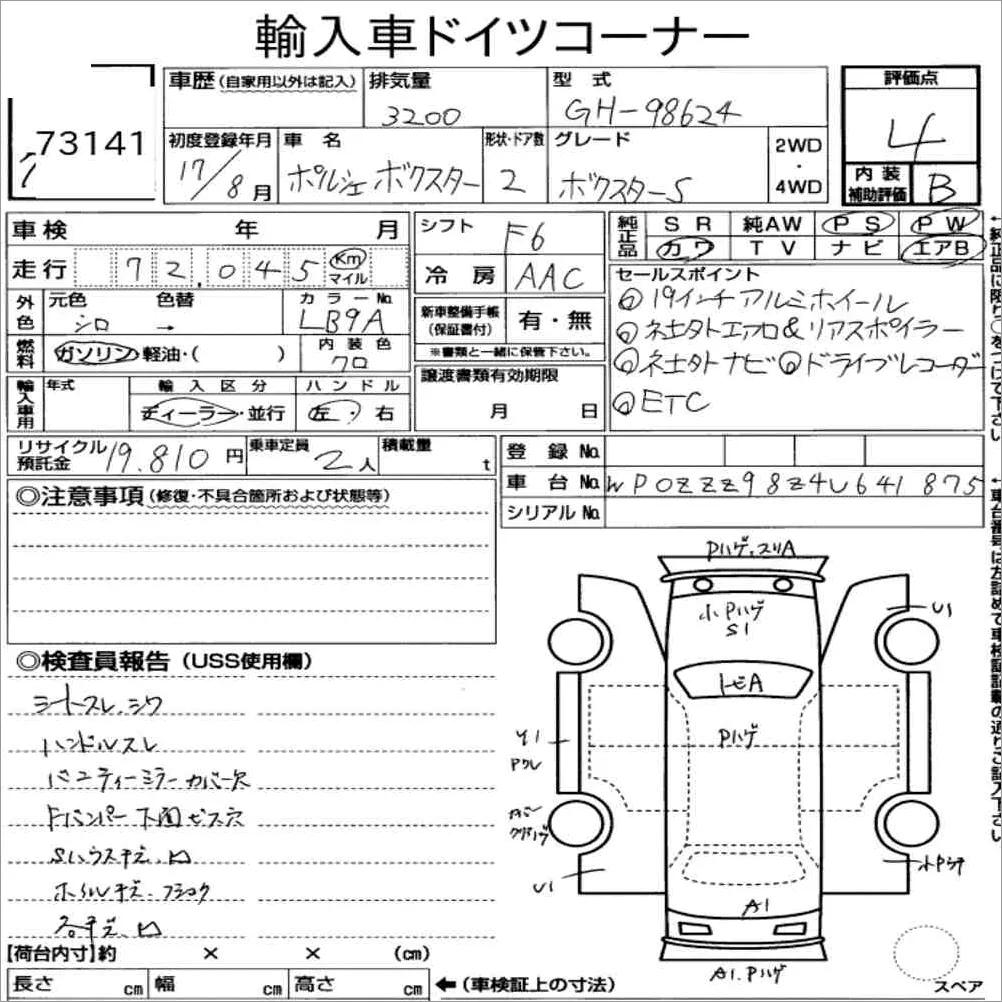 輸入車ドイツコーナー
73141
車歴(自家用以外は記入)
排気量 3200
型式 GH-98624
評価点 4
初度登録年月 17/8月
車名 ポルシェ ボクスター
形状・ドア数 2
グレード ボクスターS
2WD・4WD
内装補助評価 B
車検 年 月
シフト F6
純正品 SR 純AW PS PW
カワ TV ナビ エアB
走行 72,045 Km マイル
冷房 AAC
セールスポイント
◎19インチアルミホイール
◎社外エアロ&リアスポイラー
◎社外ナビ◎ドライブレコーダー
◎ETC
外色 元色 シロ 色替 → カラーNo. LB9A
新車整備手帳(保証書付) 有・無
※書類と一緒に保管下さい。
燃料 ガソリン・軽油・( ) 内装色 クロ
譲渡書類有効期限
月 日
輸入車用 年式 輸入区分 ハンドル
ディーラー・並行 左・右
リサイクル預託金 19,810円
乗車定員 2人
積載量 t
登録No.
車台No. WP0ZZZ98Z4U641875
シリアルNo.
←純正品に限り○をつけて下さい
←車台番号は左詰めで車検証記載の通りご記入下さい
◎注意事項(修復・不具合箇所および状態等)
◎検査員報告(USS使用欄)
シートスレ、シワ
ハンドルスレ
バニティーミラーカバー欠
Fバンパー下面ビス穴
Sハウスキズ、凹
ホイルキズ・フショク
各キズ、凹
Pハゲ、スリA
小Pハゲ
S1
U1
トビA
Pハゲ
Y1
Pワレ
カバー
U1
小Pキチ
A1
A1、Pハゲ
スペア
【荷台内寸】約 × × (cm)
長さ cm 幅 cm 高さ cm ←(車検証上の寸法)